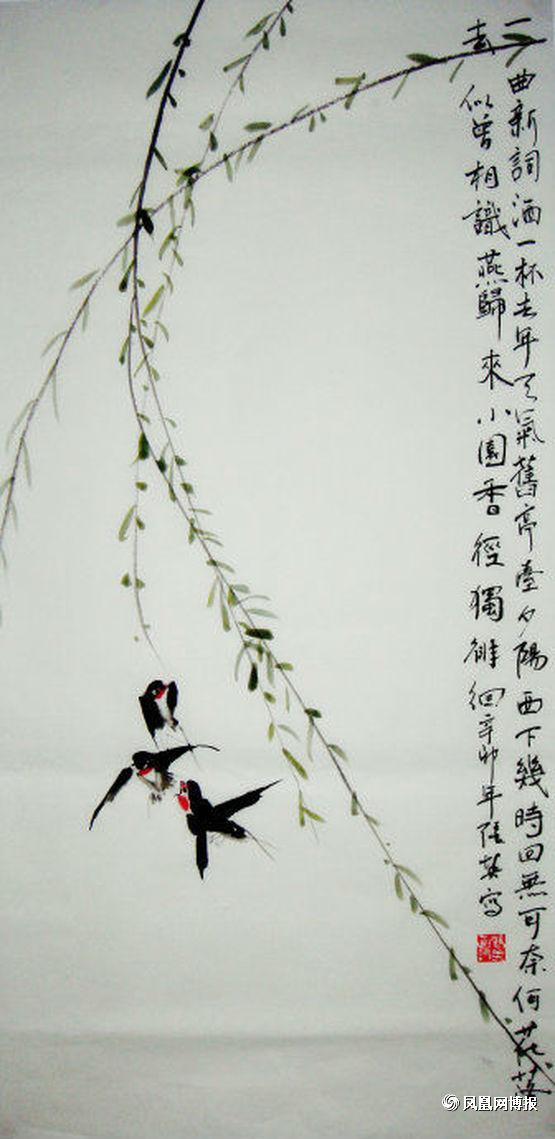 一曲新詞酒一杯去年天氣舊亭臺夕陽西下幾時回無可奈何花落
去似曾相識燕歸來小園香徑獨徘徊辛卯年陸英寫
凤凰网博报